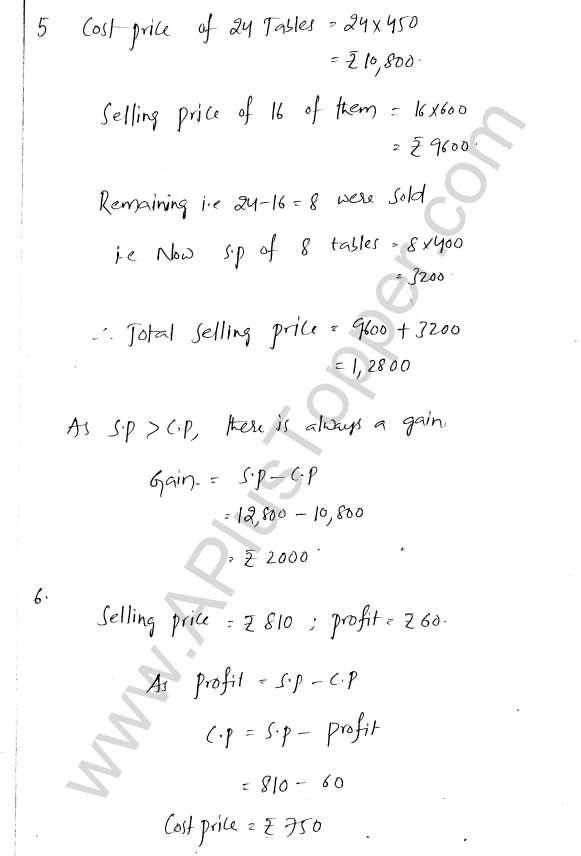 5 Cost price of 24 Tables = 24 x 450
= ₹ 10,800.
Selling price of 16 of them = 16 x 600
= ₹ 9600.
Remaining i.e 24-16 = 8 were sold
i.e Now s.p of 8 tables = 8 x 400
= 3200.
∴ Total selling price = 9600 + 3200
= 1,2800
As S.p > C.P, there is always a gain.
Gain. = S.p - C.P
= 12,800 - 10,800
= ₹ 2000
6.
Selling price = ₹ 810 ; profit = ₹ 60.
As profit = S.p - C.P
C.p = S.p - profit
= 810 - 60
Cost price = ₹ 750
www.APlusTopper.com